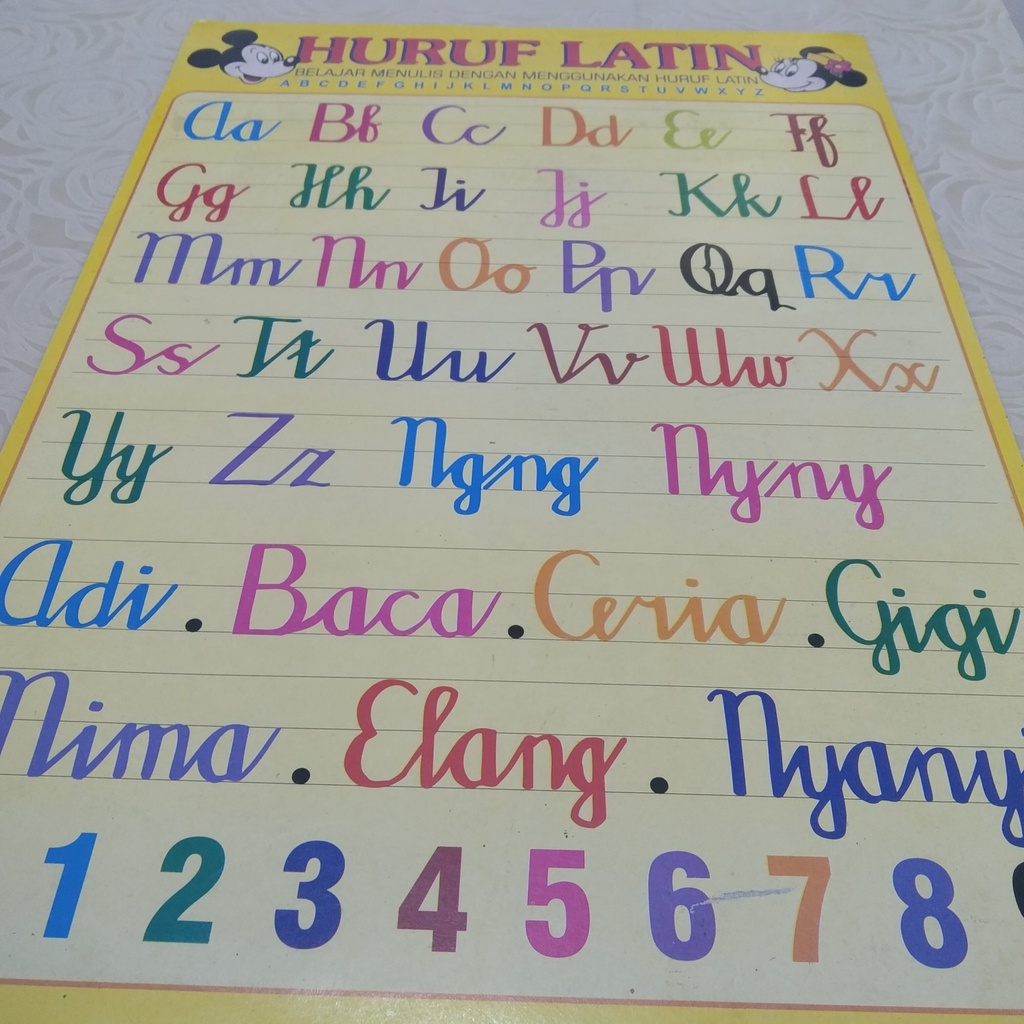 HURUF LATIN
BELAJAR MENULIS DENGAN MENGGUNAKAN HURUF LATIN
A B C D E F G H I J K L M N O P Q R S T U V W X Y Z
Aa Bb Cc Dd Ee Ff
Gg Hh Ii Jj Kk Ll
Mm Nn Oo Pp Qq Rr
Ss Tt Uu Vv Ww Xx
Yy Zz Ngng Nyny
Adi . Baca . Ceria . Gigi
Nima . Elang .
1 2 3 4 5 6 7 8